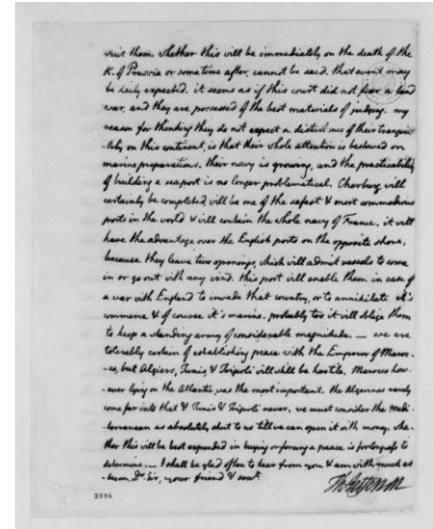 suit them. whether this will be immediately on the death of the
K. of Prussia or some time after, cannot be said. that event may
be daily expected. it seems as if this court did not fear a land
war, and they are possessed of the best materials of judging. my
reason for thinking they do not expect a disturbance of their tranquil-
-lity on this continent, is that their whole attention is bestowed on
marine preparations. their navy is growing, and the practicability
of building a seaport is no longer problematical. Cherburg will
certainly be completed, will be one of the safest & most commodious
ports in the world & will contain the whole navy of France. it will
have the advantage over the English ports on the opposite shore,
because they leave two openings, which will admit vessels to come
in or go out with any wind. this port will enable them in case of
a war with England to invade that country, or to annihilate it's
commerce & of course it's marine. probably too it will oblige them
to keep a standing army of considerable magnitude. — we are
tolerably certain of establishing peace with the Emperor of Maroc-
-co, but Algiers, Tunis, & Tripoli will still be hostile. Marocco how-
-ever lying on the Atlantic, was the most important. the Algerines rarely
come far into that & Tunis & Tripoli never. we must consider the Medi-
-terranean as absolutely shut to us till we can open it with money. whe-
ther this will be best expended in buying or forcing a peace is for Congress to
determine. — I shall be glad often to hear from you & am with much es-
-teem Dr. Sir, your friend & servt.
Th: Jefferson
3996